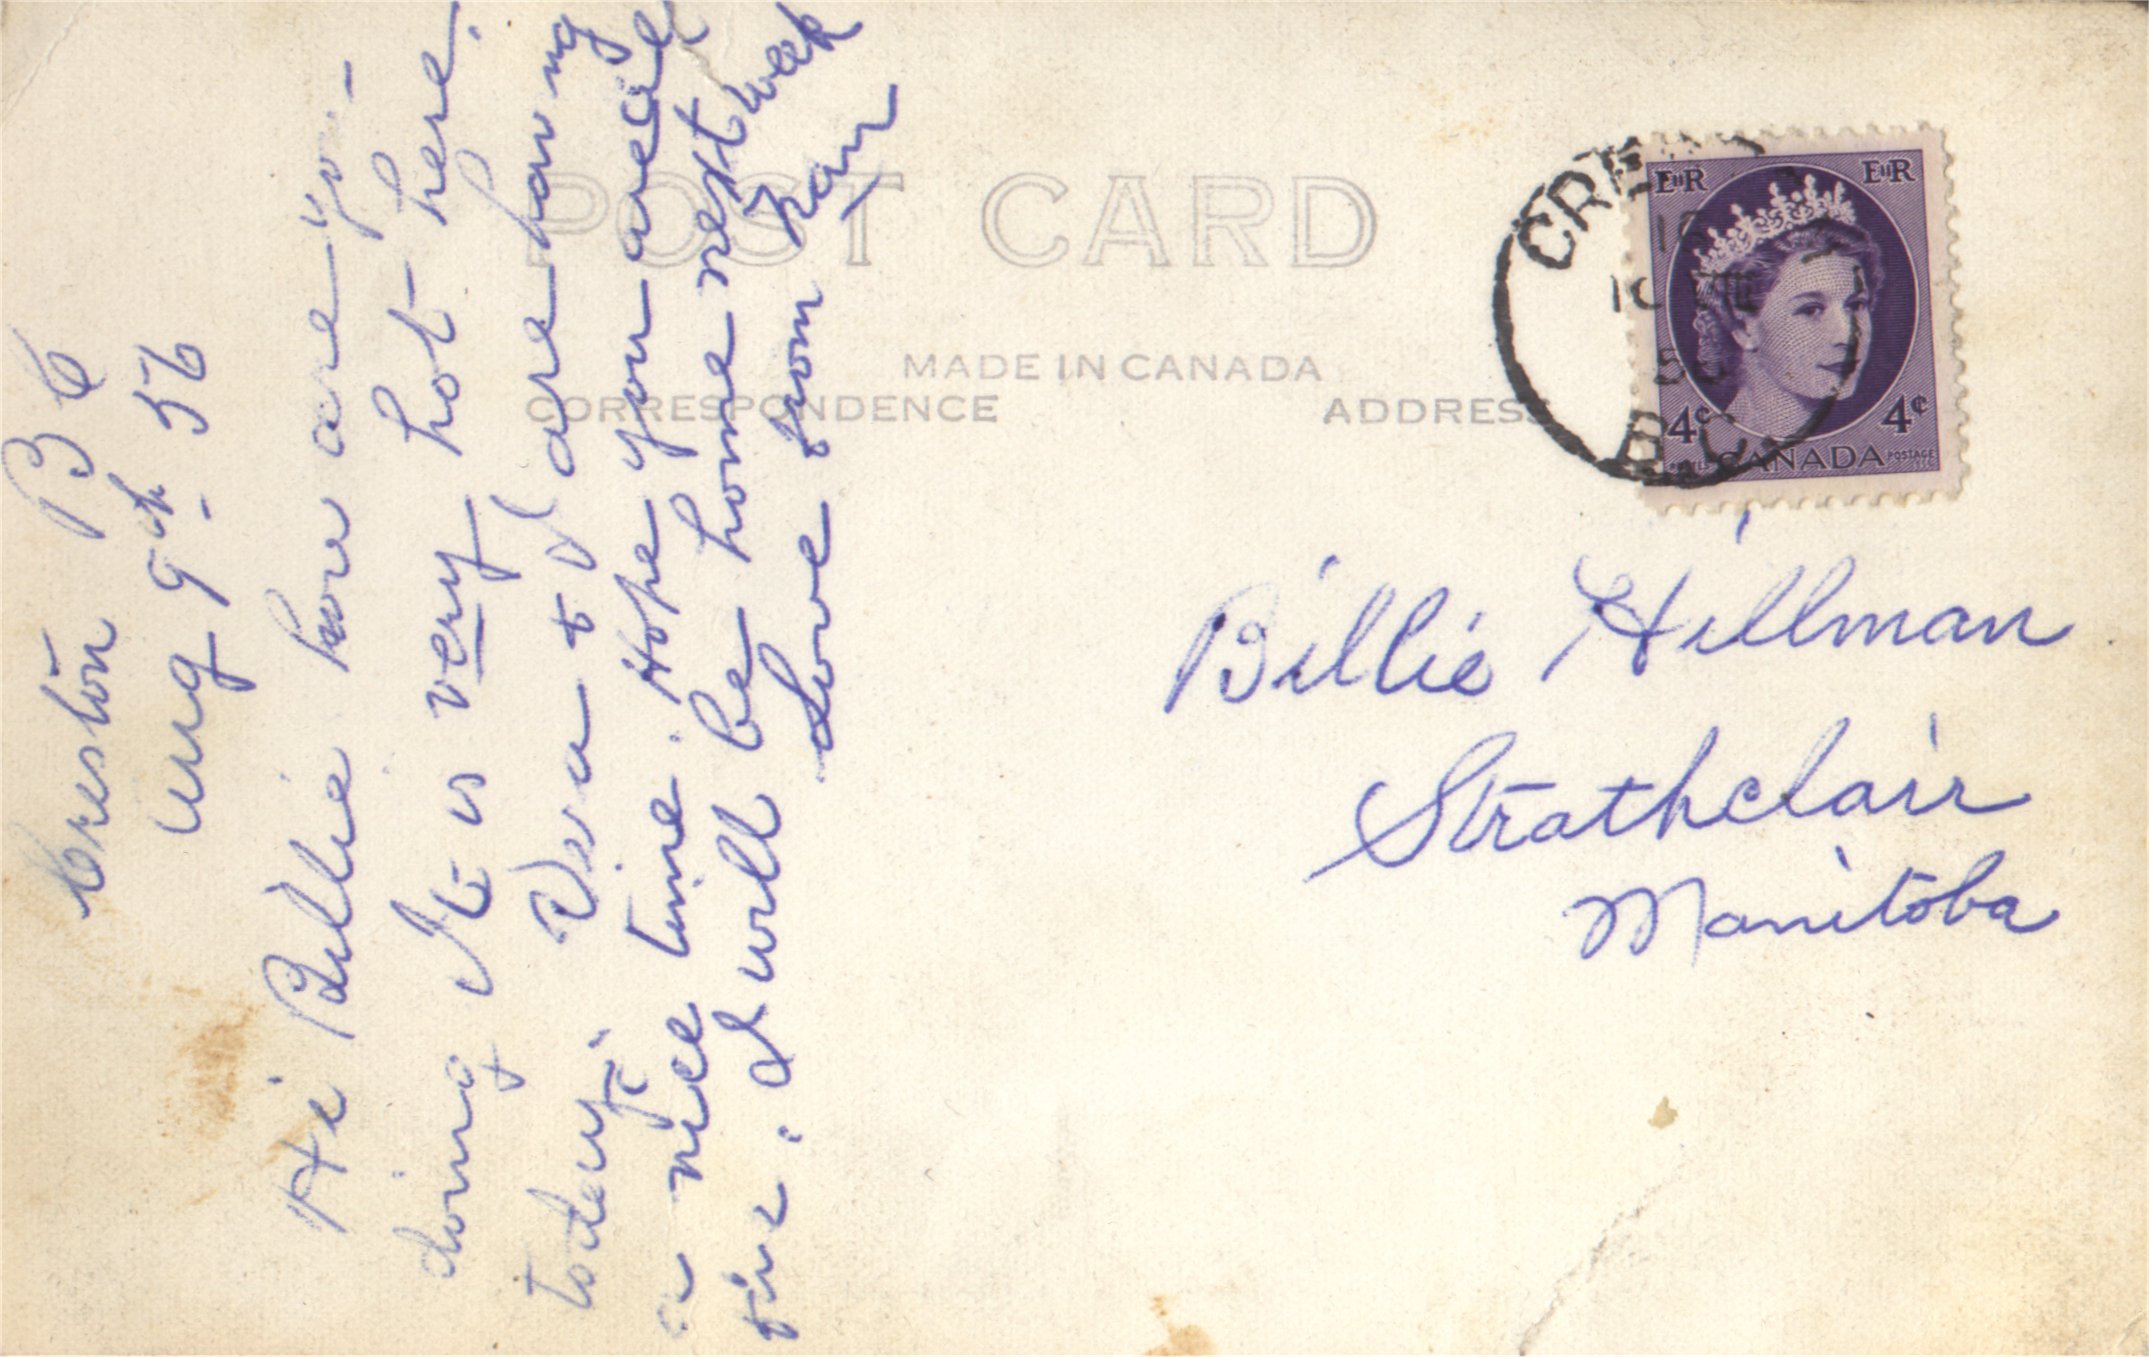 Creston B C
Aug 9th 56
Hi Billie how are you
doing It is very hot here
today. Vera + I are having
a nice time. Hope you are all
fine. I will be home next week
Love from Nan
POST CARD
MADE IN CANADA
CORRESPONDENCE
ADDRESS
EIIR EIIR
4¢ 4¢
CANADA
POSTES POSTAGE
B.C.
Billie Hillman
Strathclair
Manitoba